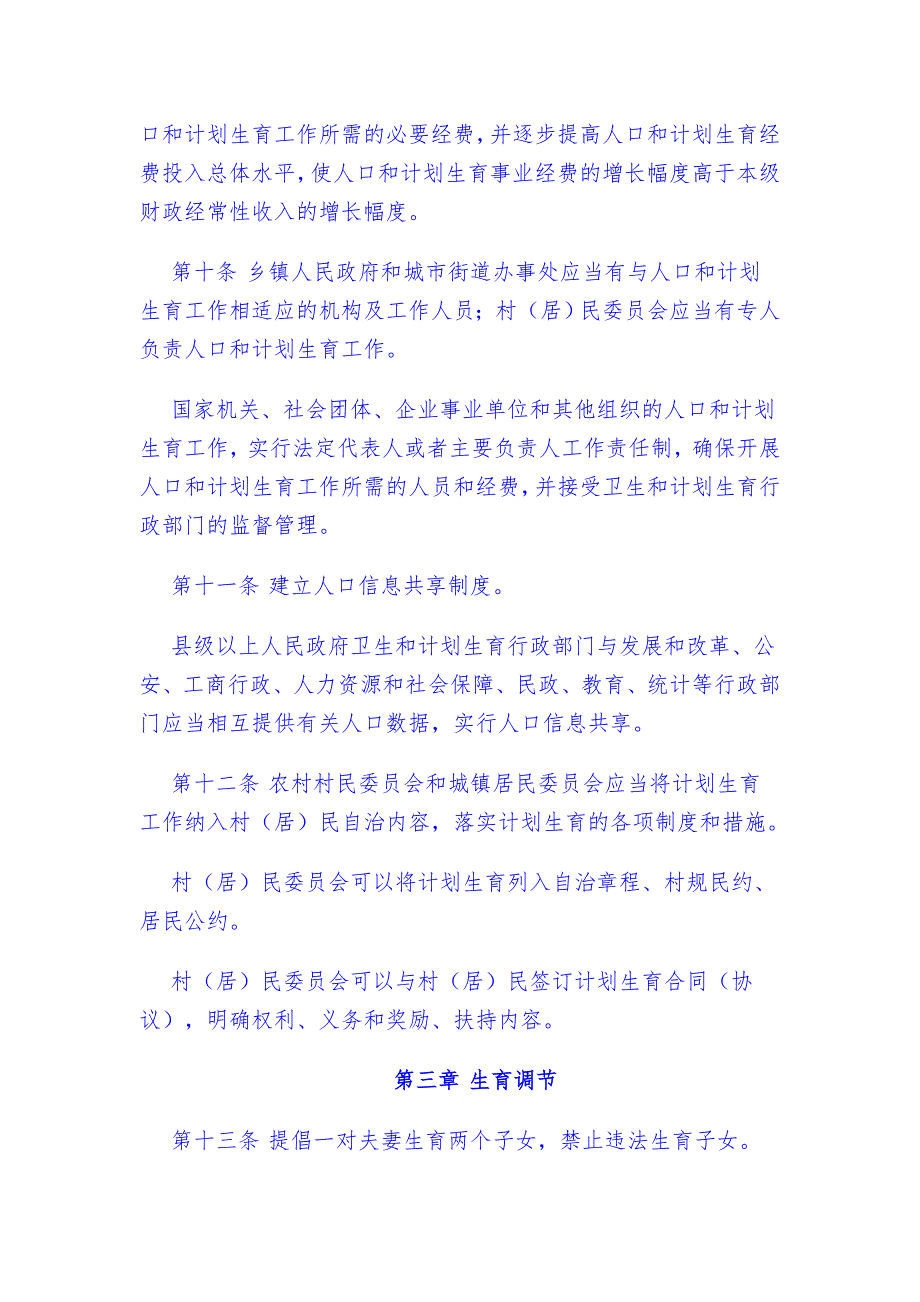 口和计划生育工作所需的必要经费,并逐步提高人口和计划生育经
费投入总体水平,使人口和计划生育事业经费的增长幅度高于本级
财政经常性收入的增长幅度。
第十条 乡镇人民政府和城市街道办事处应当有与人口和计划
生育工作相适应的机构及工作人员；村（居）民委员会应当有专人
负责人口和计划生育工作。
国家机关、社会团体、企业事业单位和其他组织的人口和计划
生育工作,实行法定代表人或者主要负责人工作责任制,确保开展
人口和计划生育工作所需的人员和经费,并接受卫生和计划生育行
政部门的监督管理。
第十一条 建立人口信息共享制度。
县级以上人民政府卫生和计划生育行政部门与发展和改革、公
安、工商行政、人力资源和社会保障、民政、教育、统计等行政部
门应当相互提供有关人口数据，实行人口信息共享。
第十二条 农村村民委员会和城镇居民委员会应当将计划生育
工作纳入村（居）民自治内容，落实计划生育的各项制度和措施。
村（居）民委员会可以将计划生育列入自治章程、村规民约、
居民公约。
村（居）民委员会可以与村（居）民签订计划生育合同（协
议），明确权利、义务和奖励、扶持内容。
第三章 生育调节
第十三条 提倡一对夫妻生育两个子女，禁止违法生育子女。